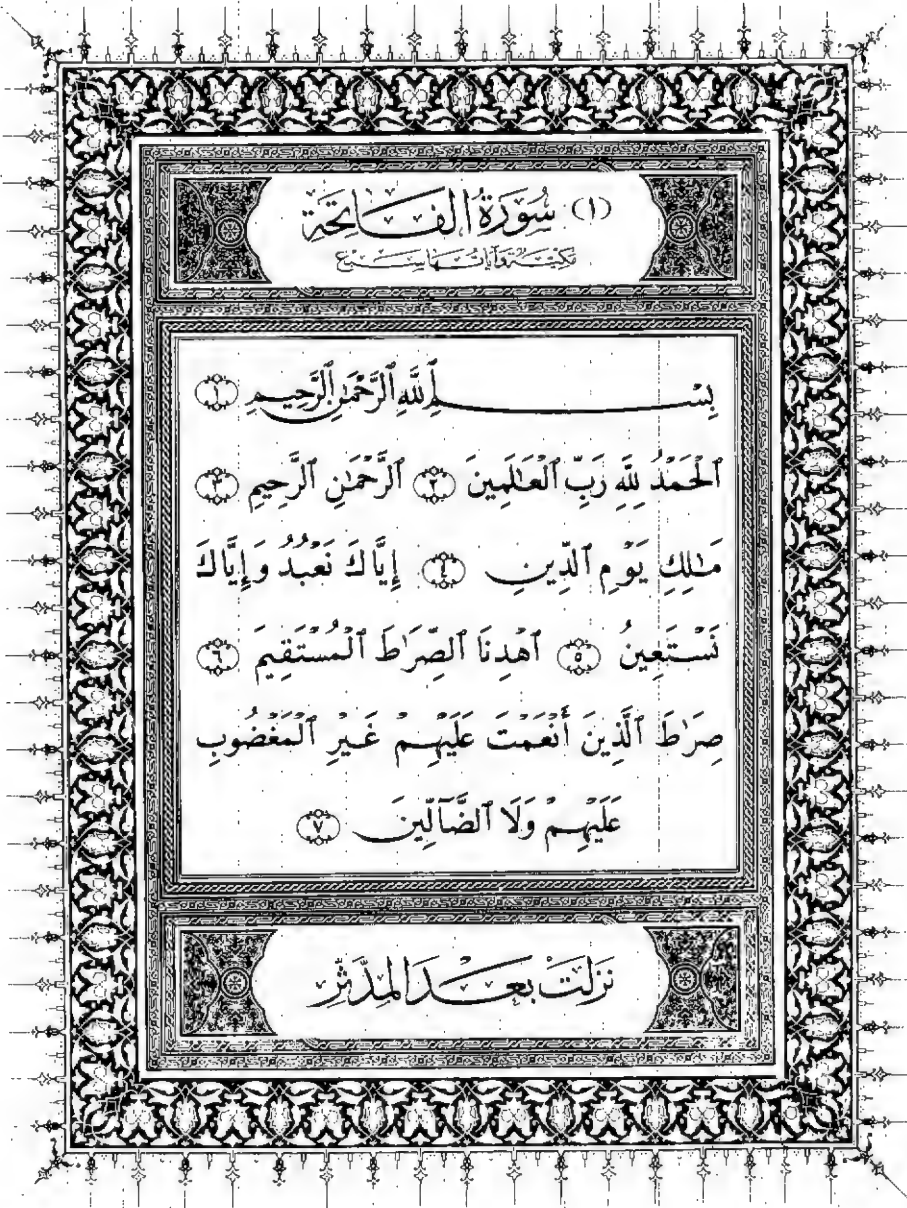 (١) سُورَةُ الفَاتِحَة
مَكِّيَّة وَآيَاتُهَا سَبْع
بِسْمِ ٱللَّهِ ٱلرَّحْمَٰنِ ٱلرَّحِيمِ ١
ٱلْحَمْدُ لِلَّهِ رَبِّ ٱلْعَٰلَمِينَ ٢ ٱلرَّحْمَٰنِ ٱلرَّحِيمِ ٣
مَٰلِكِ يَوْمِ ٱلدِّينِ ٤ إِيَّاكَ نَعْبُدُ وَإِيَّاكَ
نَسْتَعِينُ ٥ ٱهْدِنَا ٱلصِّرَٰطَ ٱلْمُسْتَقِيمَ ٦
صِرَٰطَ ٱلَّذِينَ أَنْعَمْتَ عَلَيْهِمْ غَيْرِ ٱلْمَغْضُوبِ
عَلَيْهِمْ وَلَا ٱلضَّآلِّينَ ٧
نَزَلَتْ بَعْدَ المُدَّثِّر